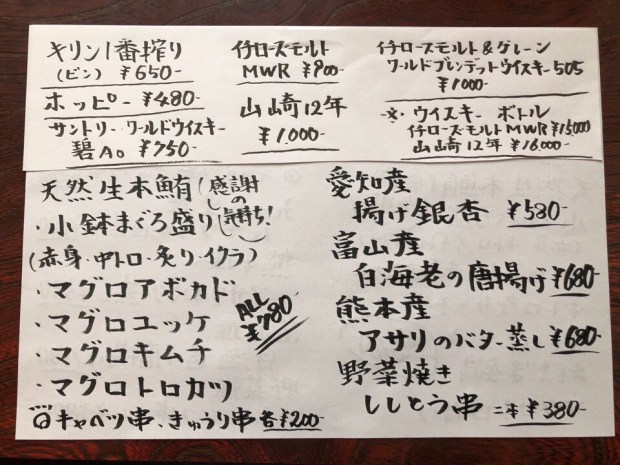 キリン一番搾り
(ビン) ¥650-
ホッピー ¥480-
サントリー・ワールドウイスキー
碧Ao ¥750-
イチローズモルト
MWR ¥900-
山崎12年
¥1,000-
イチローズモルト&グレーン
ワールドブレンデットウイスキー 505
¥1000-
※・ウイスキー ボトル
イチローズモルトMWR ¥15000
山崎12年 ¥16,000-
天然生本鮪(感謝の気持ち!)
・小鉢まぐろ盛り
(赤身・中トロ・炙り・イクラ)
・マグロアボカド
・マグロユッケ
・マグロキムチ
・マグロトロカツ
ALL
¥780-
キャベツ串、きゅうり串 各¥200-
愛知産
揚げ銀杏 ¥580-
富山産
白海老の唐揚げ ¥680-
熊本産
アサリのバター蒸し ¥680-
野菜焼き
ししとう串 二本 ¥380-